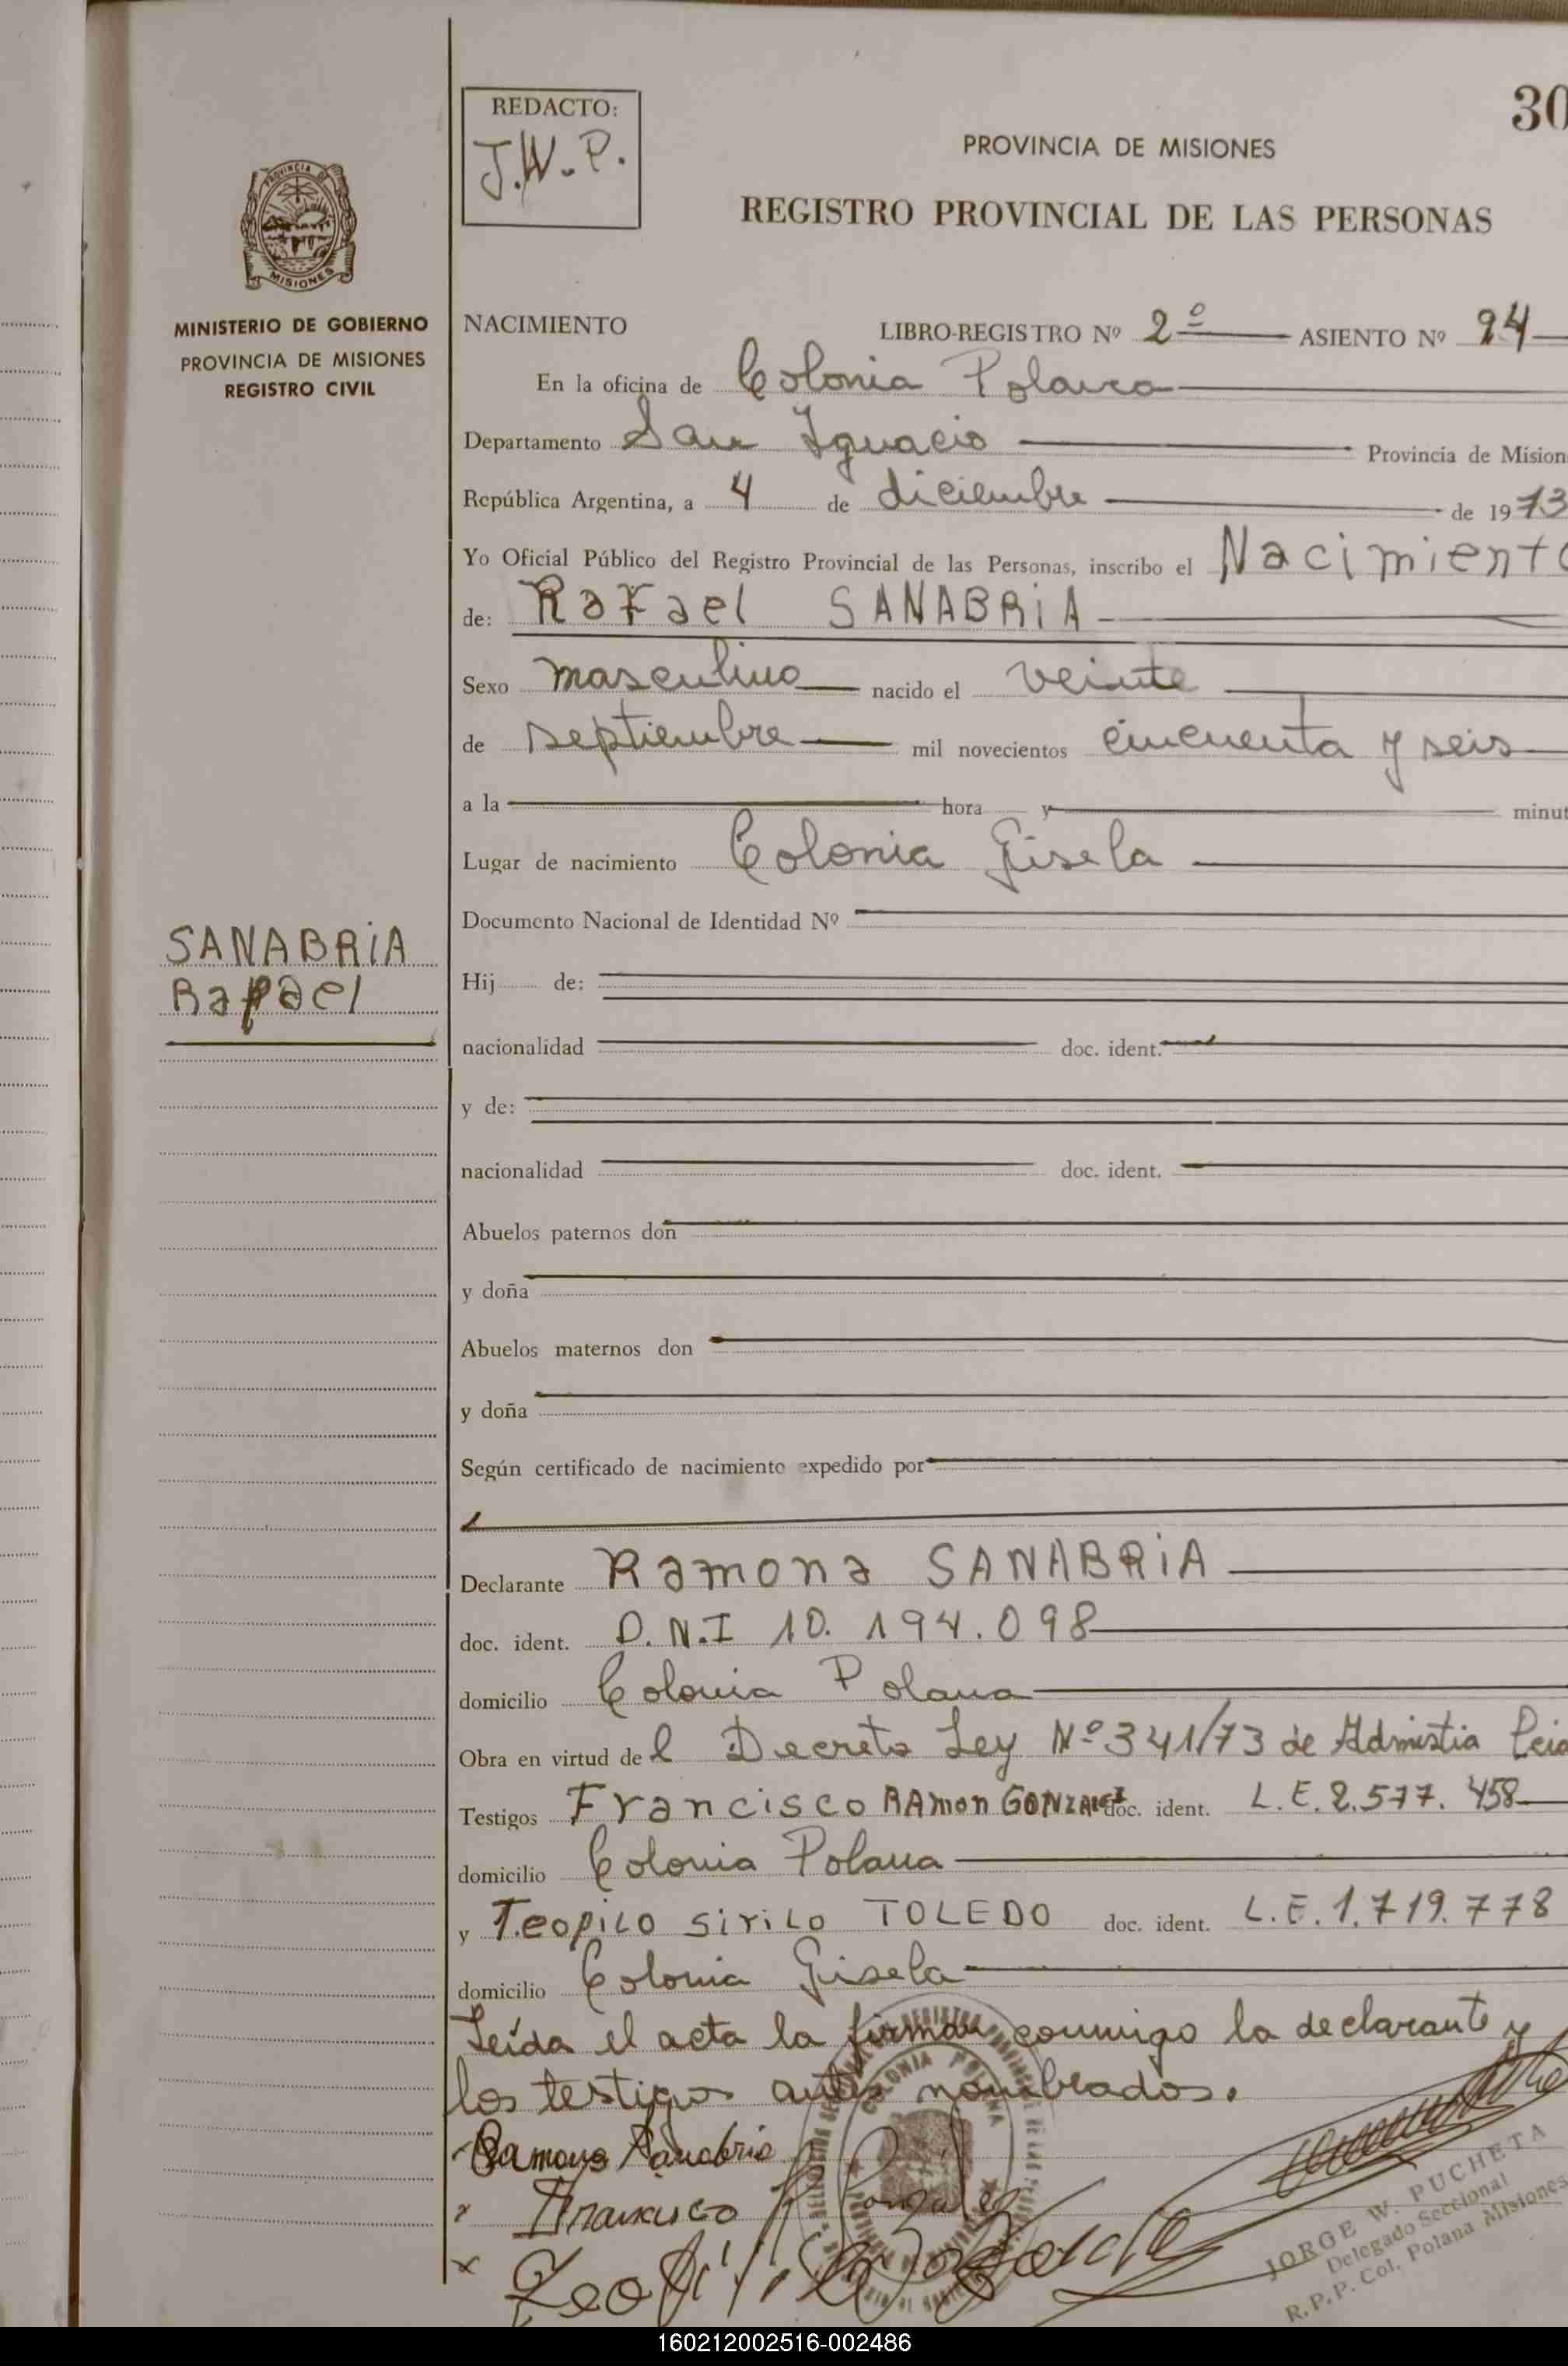 REDACTO:
J.W.P.
30
PROVINCIA DE MISIONES
REGISTRO PROVINCIAL DE LAS PERSONAS
PROVINCIA DE
MISIONES
MINISTERIO DE GOBIERNO
PROVINCIA DE MISIONES
REGISTRO CIVIL
NACIMIENTO LIBRO-REGISTRO Nº 2º ASIENTO Nº 94
En la oficina de Colonia Polana
Departamento San Ignacio Provincia de Mision
República Argentina, a 4 de diciembre de 1973
Yo Oficial Público del Registro Provincial de las Personas, inscribo el Nacimiento
de: Rafael SANABRIA
Sexo masculino nacido el veinte
de septiembre mil novecientos cincuenta y seis
a la hora y minut
Lugar de nacimiento Colonia Gisela
Documento Nacional de Identidad Nº
SANABRIA
Rafael
Hij de:
nacionalidad doc. ident.
y de:
nacionalidad doc. ident.
Abuelos paternos don
y doña
Abuelos maternos don
y doña
Según certificado de nacimiento expedido por
Declarante Ramona SANABRIA
doc. ident. D.N.I 10.194.098
domicilio Colonia Polana
Obra en virtud del Decreto Ley Nº 341/73 de Admistia
Testigos Francisco RAMON GONZALEZ doc. ident. L.E. 2.577.458
domicilio Colonia Polana
y Teopilo Sirilo TOLEDO doc. ident. L.E. 1.719.778
domicilio Colonia Gisela
Leída el acta la firman conmigo la declarante y
los testigos antes nombrados.
COLONIA POLANA
Ramona Sanabria
x Francisco R Gonzalez
x
JORGE W. PUCHETA
Delegado Seccional
R.P.P. Col. Polana Misiones
160212002516-002486